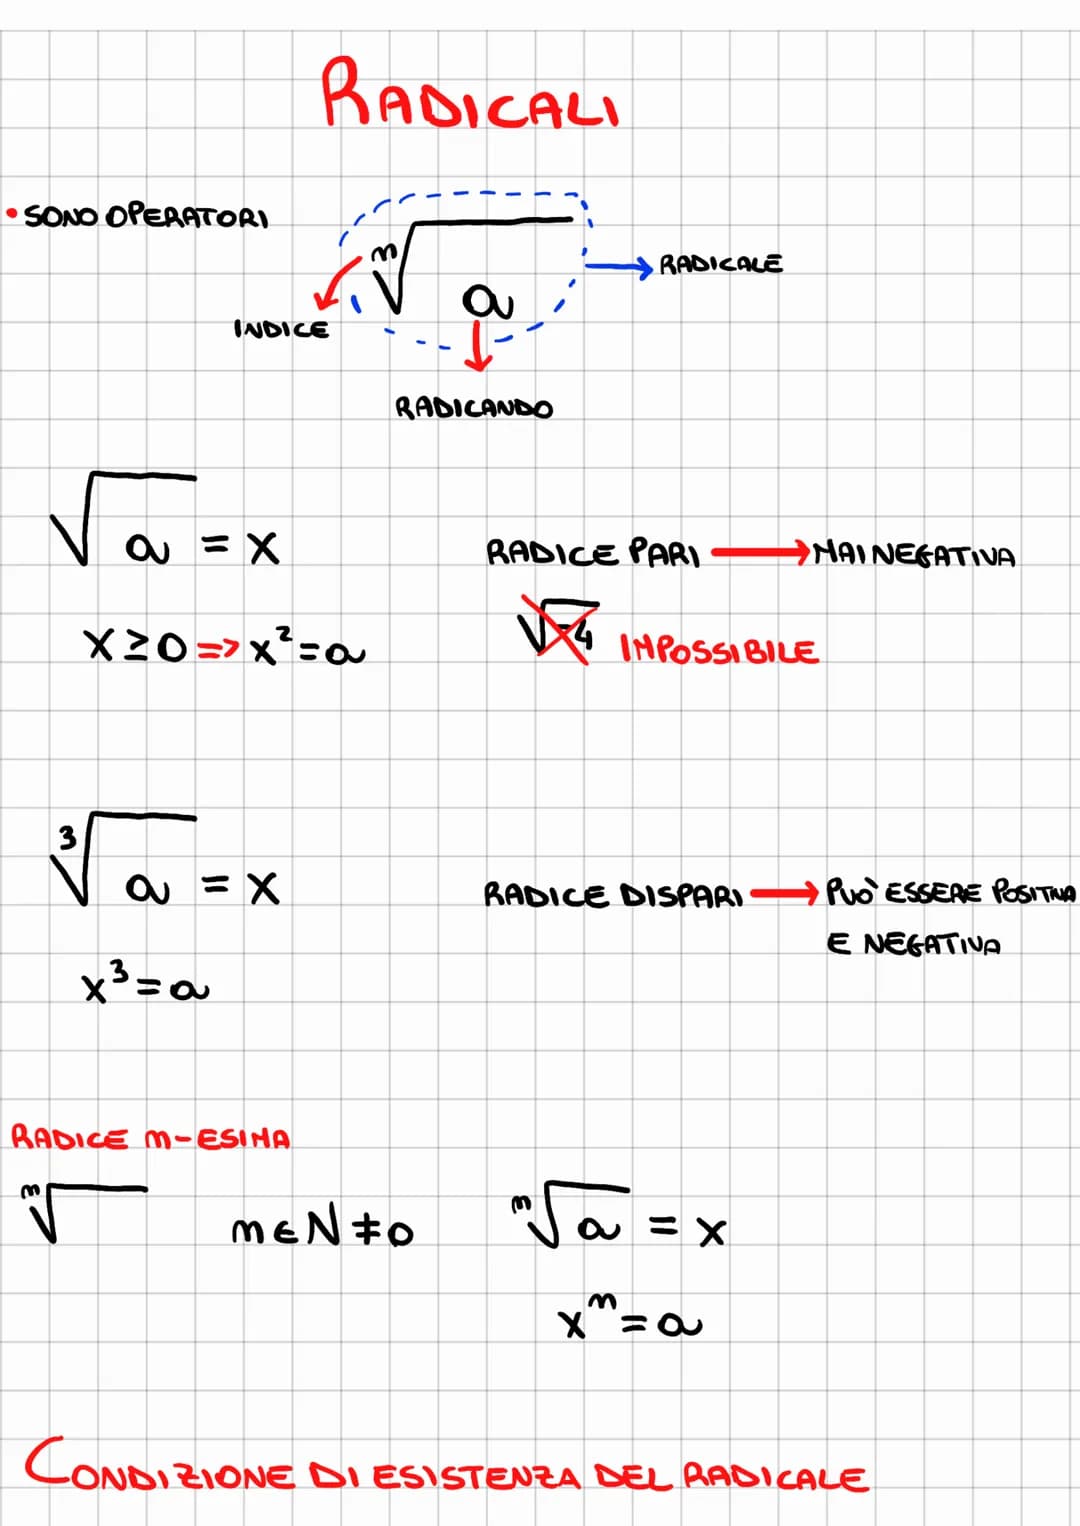 RADICALI
• SONO OPERATORI
ⁿ√a
→ RADICALE
INDICE
RADICANDO
√a = x
RADICE PARI → MAI NEGATIVA
x ≥ 0 => x² = a
√-4 IMPOSSIBILE
³√a = x
RADICE DISPARI → PUO' ESSERE POSITIVA
E NEGATIVA
x³ = a
RADICE n-ESIMA
ⁿ√ n ∈ N ≠ 0 ⁿ√a = x
xⁿ = a
CONDIZIONE DI ESISTENZA DEL RADICALE